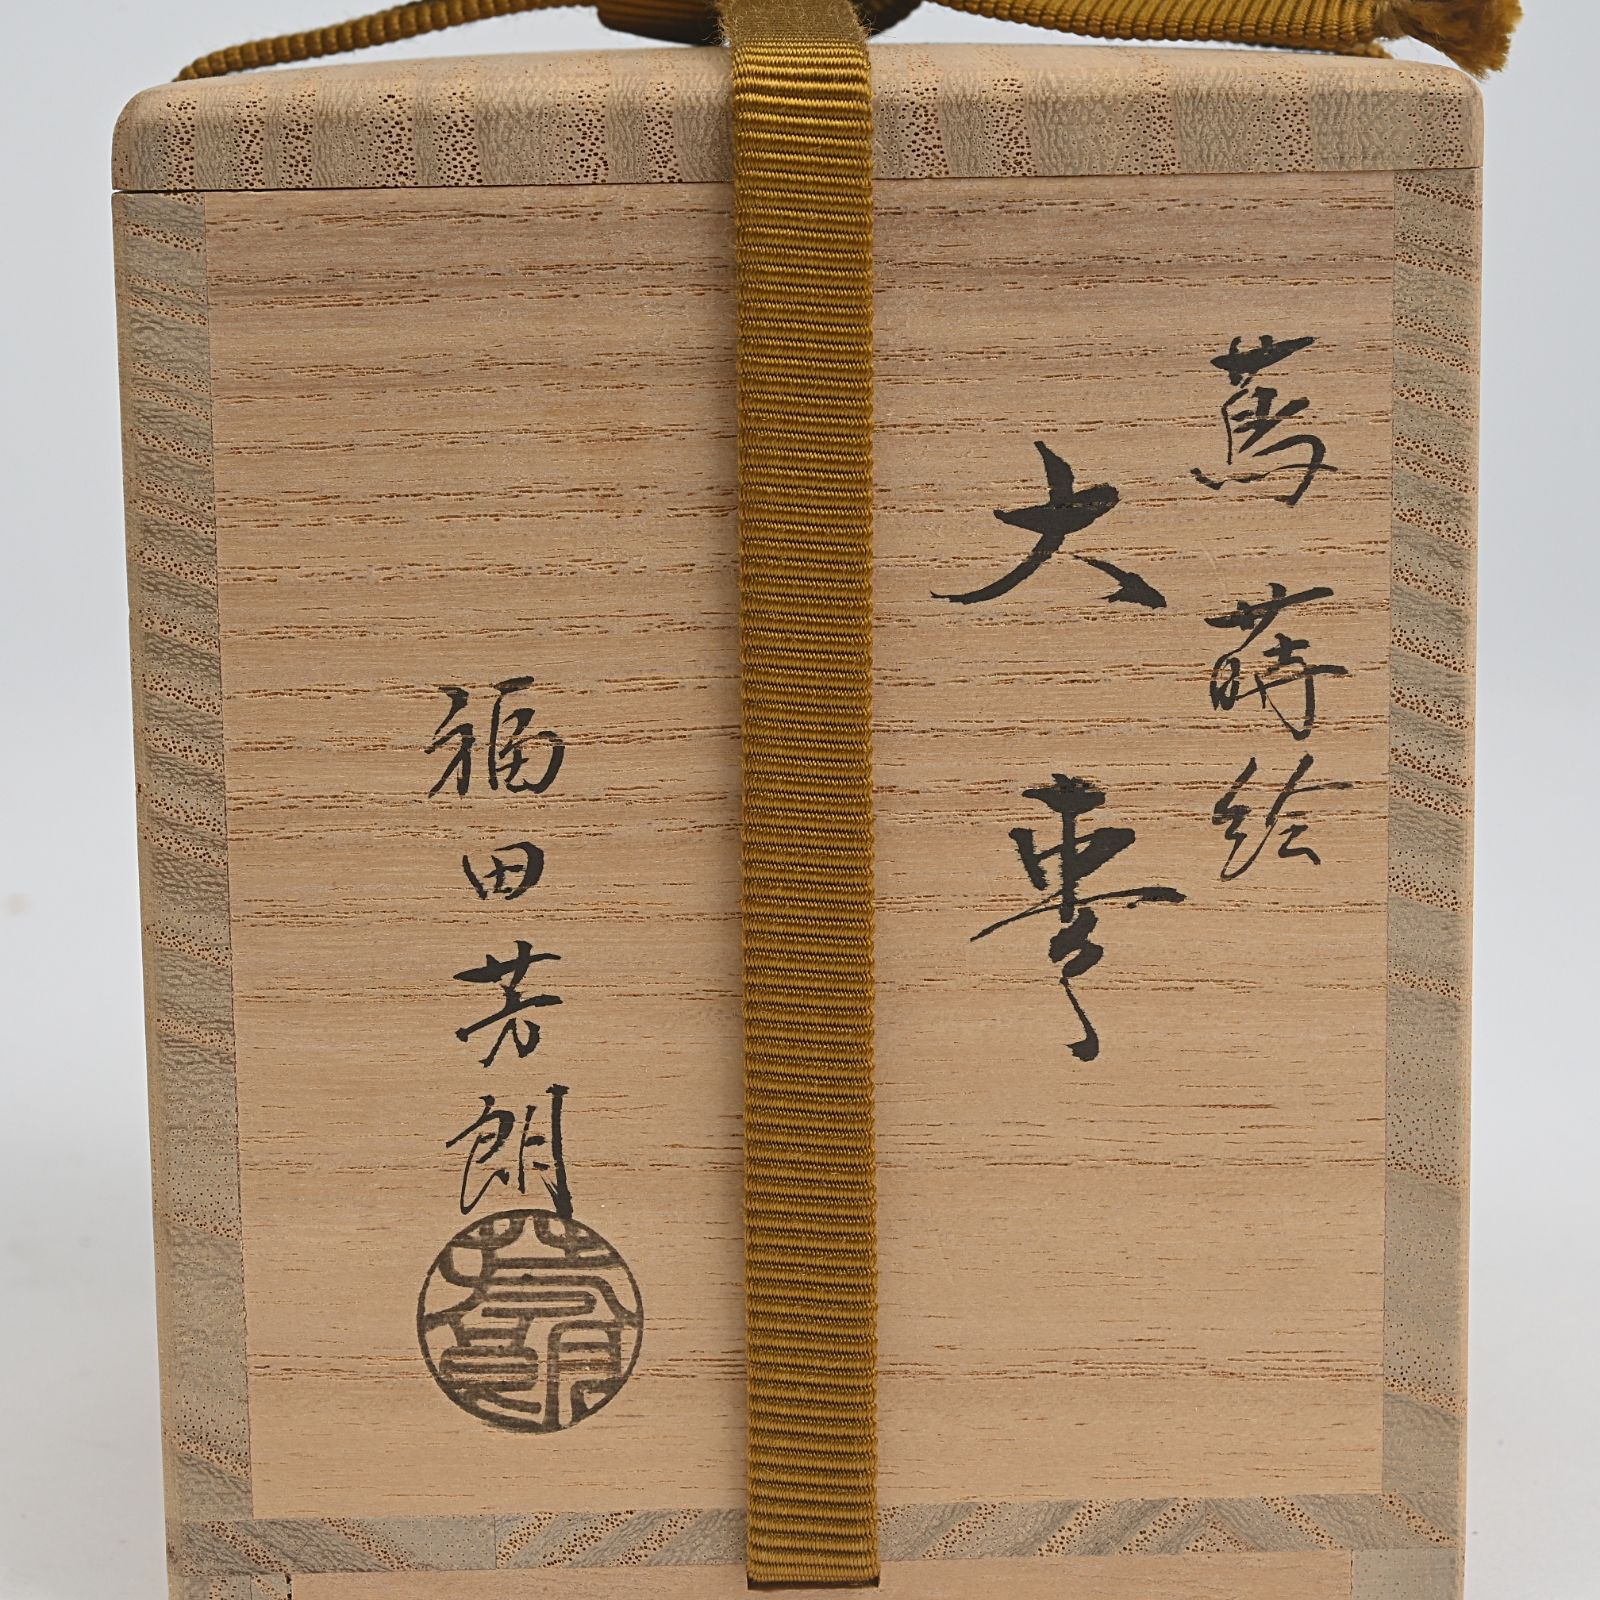 蔦蒔絵
大棗
福田芳朗
芳朗